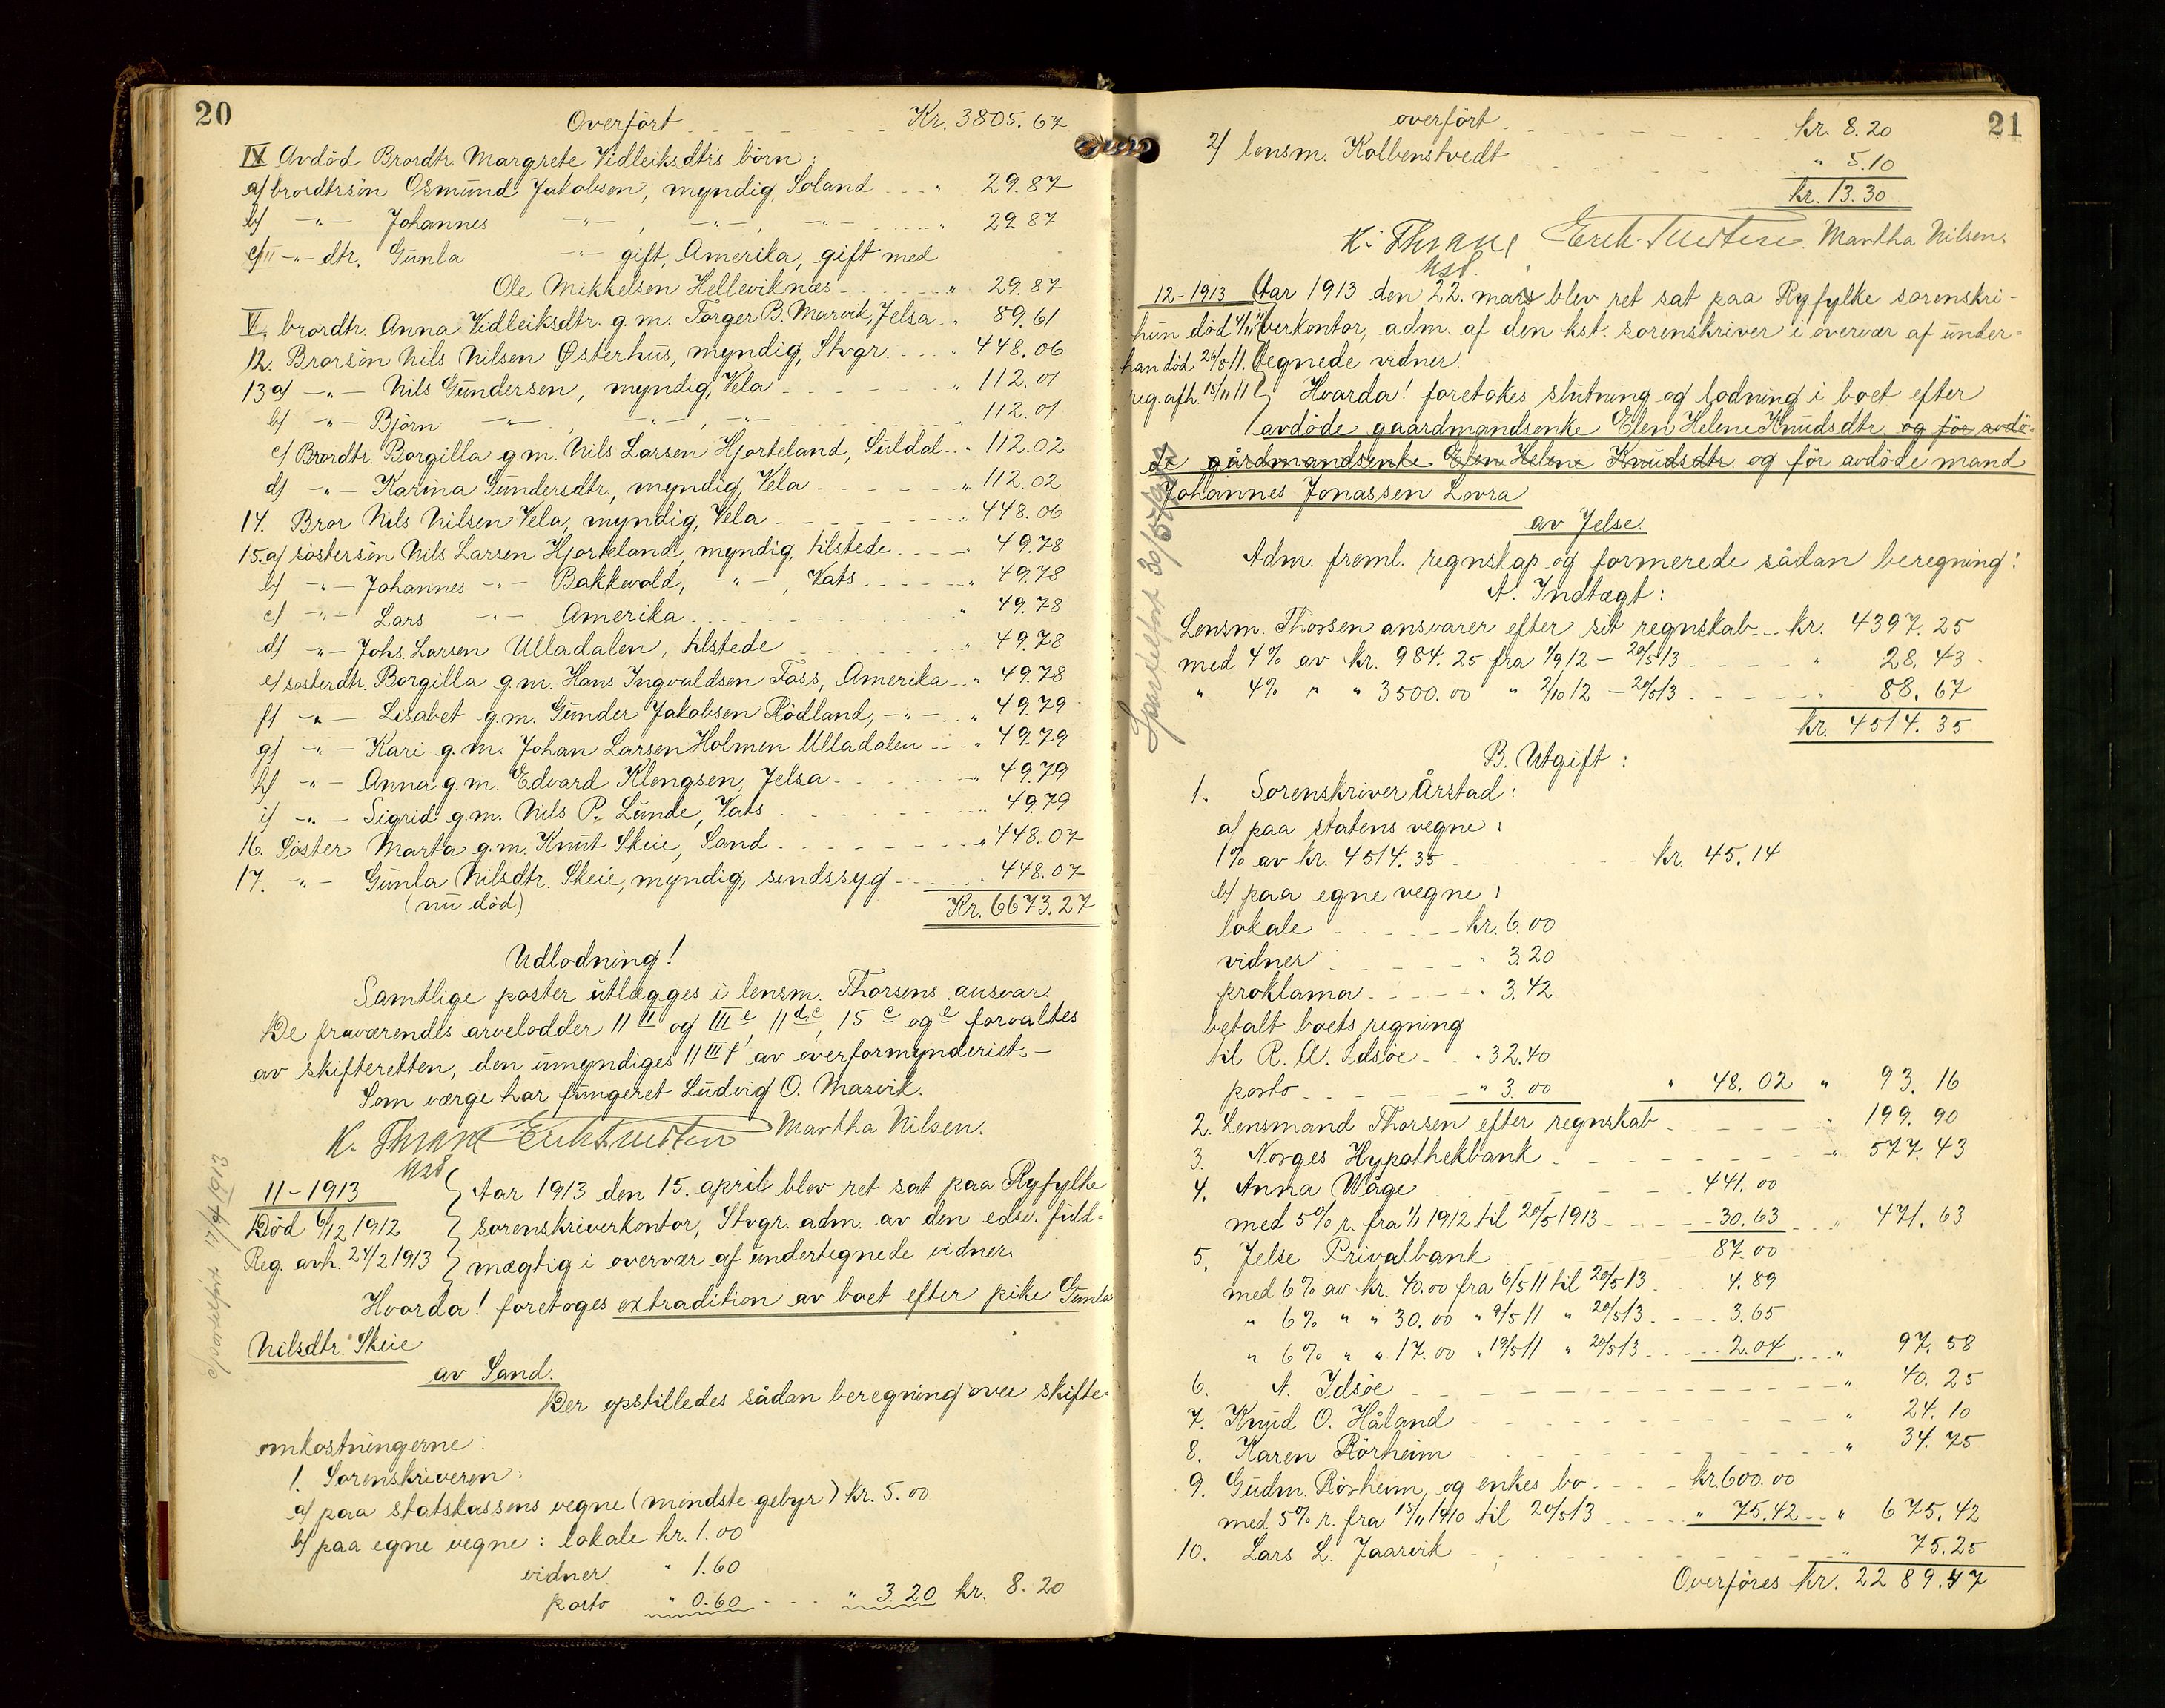 20
Overført Kr. 3805.67
IV Avdöd Brordtr. Margrete Vidleiksdtrs börn:
a/ brordtrsön Osmund Jakobsen, myndig, Soland " 29.87
b/ -"- Johannes -"-, -"-, -"- " 29.87
c/ -"- dtr. Gunla -"- gift, Amerika, gift med
Ole Mikkelsen Helleviknæs " 29.87
V. brordtr. Anna Vidleiksdtr. g.m. Torger B. Marvik, Jelsa " 89.61
12. Brorsön Nils Nilsen Østerhus, myndig, Stvgr. " 448.06
13 a/ -"- Nils Gundersen, myndig, Vela " 112.01
b/ -"- Björn -"-, -"-, -"- 112.01
c/ Brordtr. Borgilla g.m. Nils Larsen Hjorteland, Suldal " 112.02
d/ -"- Karina Gundersdtr, myndig, Vela " 112.02
14. Bror Nils Nilsen Vela, myndig, Vela " 448.06
15. a/ söstersön Nils Larsen Hjorteland, myndig, tilstede " 49.78
b/ -"- Johannes -"- Bakkevold, -"-, Vats " 49.78
c/ -"- Lars -"- Amerika " 49.78
d/ -"- Johs. Larsen Ulladalen, tilstede " 49.78
e/ sösterdtr. Borgilla g.m. Hans Ingvaldsen Foss, Amerika " 49.78
f/ -"- Lisabet g.m. Gunder Jakobsen Rödland, -"- " 49.79
g/ -"- Kari g.m. Johan Larsen Holmen Ulladalen " 49.79
h/ -"- Anna g.m. Edvard Klengsen, Jelsa " 49.79
i/ -"- Sigrid g.m. Nils P. Lunde, Vats " 49.79
16. Söster Marta g.m. Knut Skeie, Sand " 448.07
17. -"- Gunla Nilsdtr. Skeie, myndig, sindssyg " 448.07
(nu död) Kr. 6673.27
Udlodning!
Samtlige poster utlægges i lensm. Thorsens ansvar.
De fraværendes arvelodder 11 II og III e, 11 d,c, 15 c og e forvaltes
av skifteretten, den umyndiges 11 III f av overformynderiet.-
Som værge har fungeret Ludvig O. Marvik.
K. Thrane Martha Nilsen.
kst
11-1913 Aar 1913 den 15. april blev ret sat paa Ryfylke
Död 6/12 1912 sorenskriverkontor, Stvgr. adm. av den edsv. fuld-
Reg. avh. 24/2 1913 mægtig i overvær af undertegnede vidner.
Hvorda! foretoges extradition av boet efter pike Gunla
Nilsdtr. Skeie
av Sand.
Der opstilledes sådan beregning over skifte-
omkostningerne:
1. Sorenskriveren:
a/ paa statskassens vegne (mindste gebyr) kr. 5.00
b/ paa egne vegne: lokale kr. 1.00
vidner " 1.60
porto " 0.60 " 3.20 kr. 8.20
21
overfört kr. 8.20
2/ lensm. Kolbenstvedt " 5.10
kr. 13.30
K. Thrane Martha Nilsen.
kst.
12-1913 Aar 1913 den 22. mars blev ret sat paa Ryfylke sorenskri-
hun död 4/11 11 verkontor, adm. af den kst. sorenskriver i overvær af under-
han död 26/8 11. tegnede vidner.
reg. afh. 15/11 11 Hvorda! foretokes slutning og lodning i boet efter
avdöde gaardmandsenke Elen Helene Knudsdtr. og för avdö-
de gårdmandsenke Elen Helene Knudsdtr. og för avdöde mand
Johannes Jonassen Lovra
av Jelse.
Adm. freml. regnskap og formerede sådan beregning:
A. Indtægt:
Lensm. Thorsen ansvarer efter sit regnskab kr. 4397.25
med 4% av kr. 984.25 fra 1/9 12 - 20/5 13 " 28.43
" 4% " " 3500.00 " 2/10 12 - 20/5 13 " 88.67
kr. 4514.35
B. Utgift:
1. Sorenskriver Årstad:
a/ paa statens vegne:
1% av kr. 4514.35 kr. 45.14
b/ paa egne vegne:
lokale kr. 6.00
vidner " 3.20
proklama " 3.42
betalt boets regning
til R. A. Idsöe " 32.40
porto " 3.00 " 48.02 " 93.16
2. Lensmand Thorsen efter regnskab " 199.90
3. Norges Hypothekbank " 577.43
4. Anna Wåge 441.00
med 5% r. fra 1/1 1912 til 20/5 1913 30.63 " 471.63
5. Jelse Privatbank 87.00
med 6% av kr. 40.00 fra 6/5 11 til 20/5 13 4.89
" 6% " " 30.00 " 9/5 11 " 20/5 13 3.65
" 6% " " 17.00 " 19/5 11 " 20/5 13 2.04 " 97.58
6. A. Idsöe " 40.25
7. Knud O. Håland " 24.10
8. Karen Rörheim " 34.75
9. Gudm. Rörheim, og enkes bo kr. 600.00
med 5% r. fra 15/11 1910 til 20/5 13 " 75.42 " 675.42
10. Lars L. Jaarvik " 75.25
Overföres kr. 2289.47